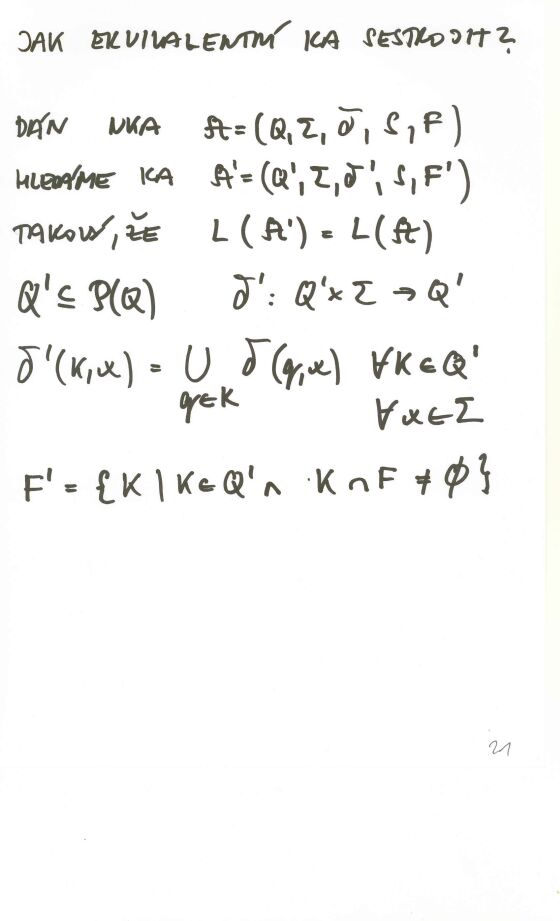 JAK EKVIVALENTNÍ KA SESTROJIT?
DÁN NKA A=(Q,Σ,δ,S,F)
HLEDÁME KA A'=(Q',Σ,δ',S,F')
TAKOVÝ, ŽE L(A') = L(A)
Q' ⊆ P(Q) δ': Q'×Σ → Q'
δ'(K,x) = ∪ δ(q,x) ∀K∈Q'
q∈K ∀x∈Σ
F' = {K | K∈Q' ∧ K∩F ≠ ∅}
21